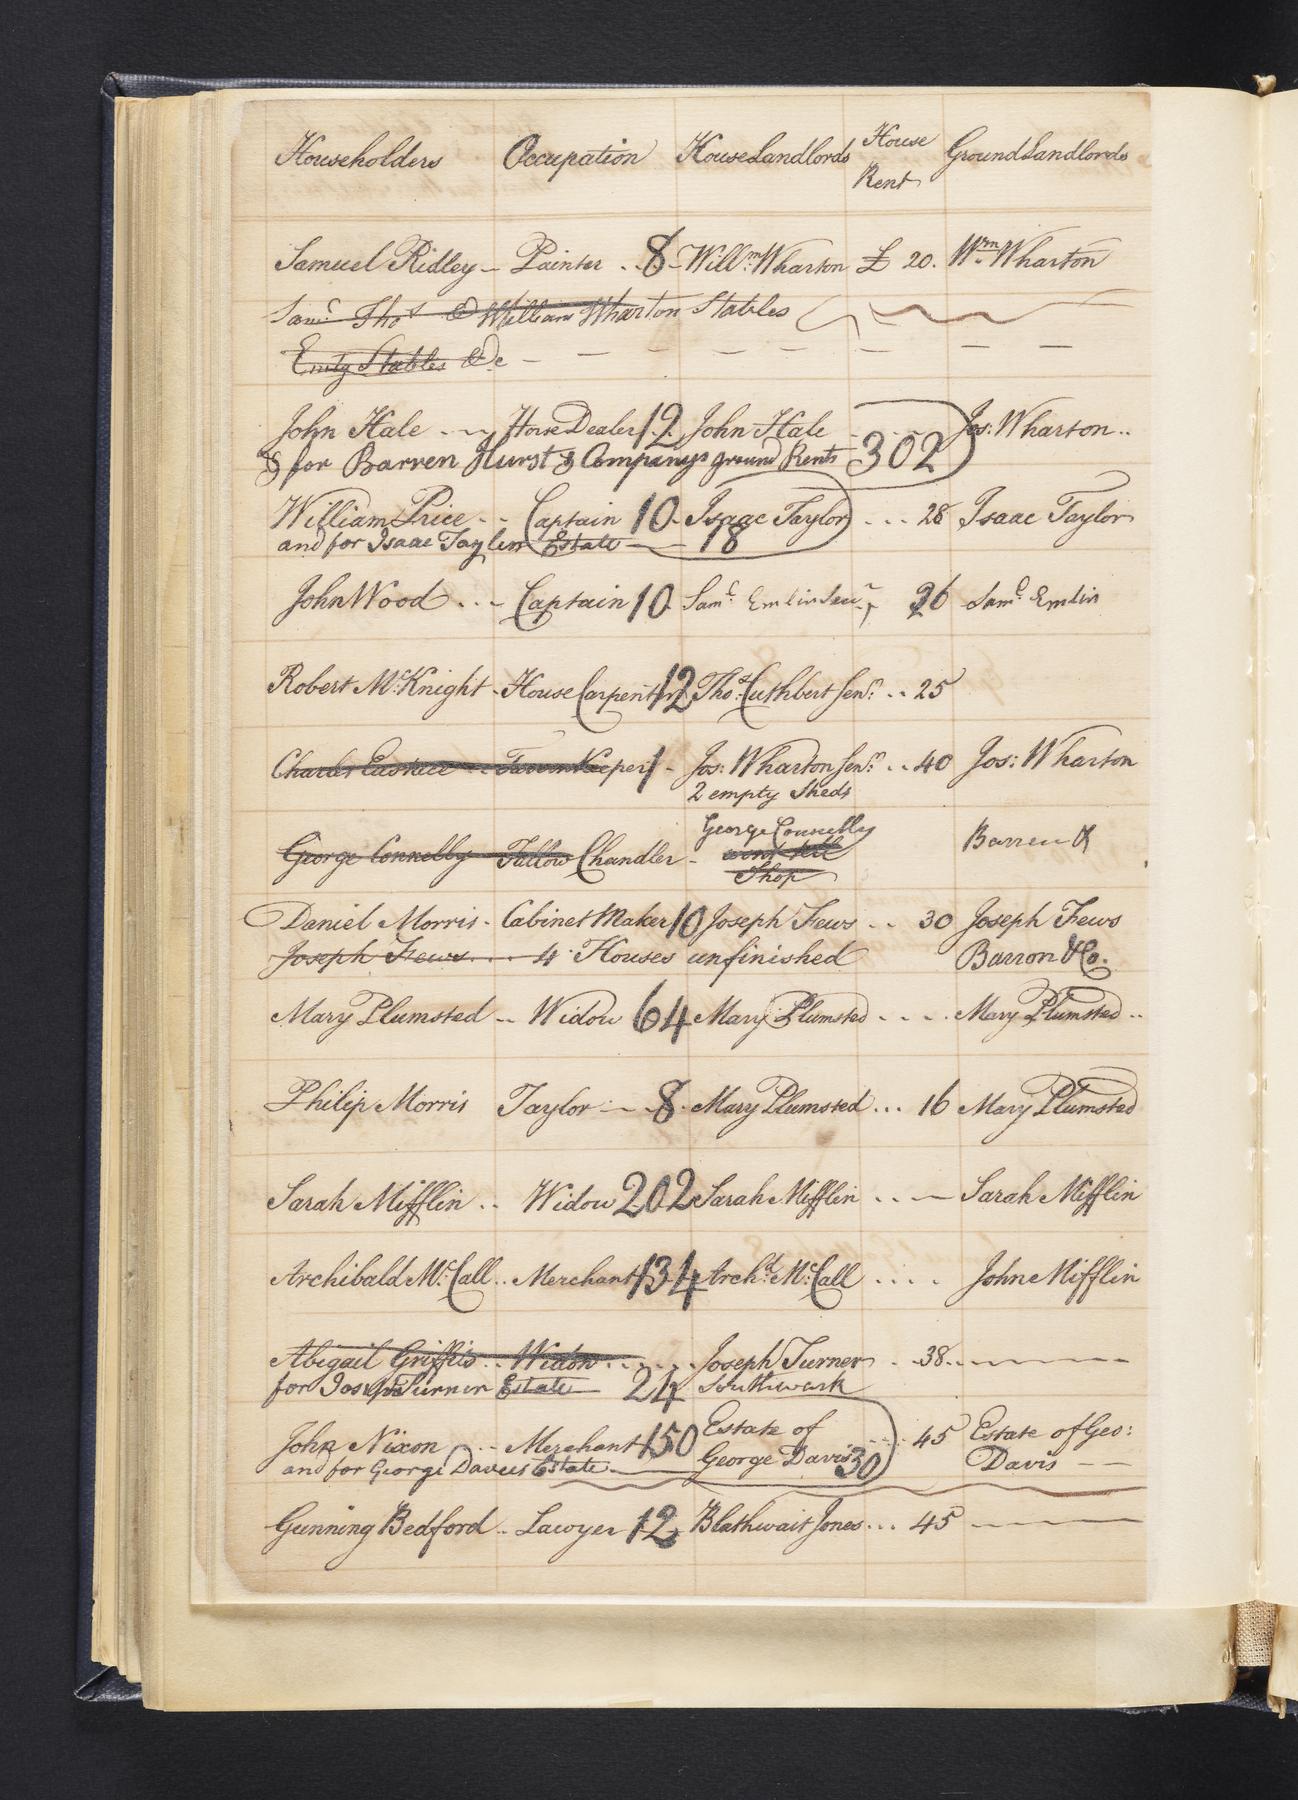 Householders Occupation House Landlords House Rent Ground Landlords
Samuel Ridley – Painter .. 8 – Willm. Wharton £ 20. Wm. Wharton
Saml. Thos. & William Wharton Stables
Emty Stables &c – – – – – – – –
John Hale .. – Horse Dealer 12. John Hale Jos: Wharton ..
& for Barren Hurst & Companys ground Rents 302
William Price .. Captain 10. Isaac Taylor ... 28 Isaac Taylor
and for Isaac Taylers Estate — 18
John Wood ... Captain 10. Saml. Emlin Senr. 26 Saml. Emlin
Robert McKnight . House Carpenter 12 Thos. Cuthbert Senr. .. 25
Charles .. Tavern Keeper 1 – Jos: Wharton Senr. .. 40 Jos: Wharton
2 empty Sheds
George Connelly
George Connelly Tallow Chandler – Barren &
Shop
Daniel Morris . Cabinet Maker 10 Joseph Fews .. 30 Joseph Fews
Joseph Fews .... 4 Houses unfinished Barron & Co.
Mary Plumsted .. Widow 64 Mary Plumsted .... Mary Plumsted ..
Philip Morris Taylor – .. 8. Mary Plumsted ... 16 Mary Plumsted
Sarah Mifflin .. Widow 202 Sarah Mifflin .. — Sarah Mifflin
Archibald McCall .. Merchant 134 Archd. McCall .... John Mifflin
Abigail Griffis .. Widow ...... Joseph Turner .. 38 ..
for Joseph Turner Estate — 24 Southwark
John Nixon ... Merchant 150 Estate of George Davis ... 45 Estate of Geo: Davis – –
and for George Davies Estate 30
Gunning Bedford .. Lawyer 12 Blathwait Jones ... 45